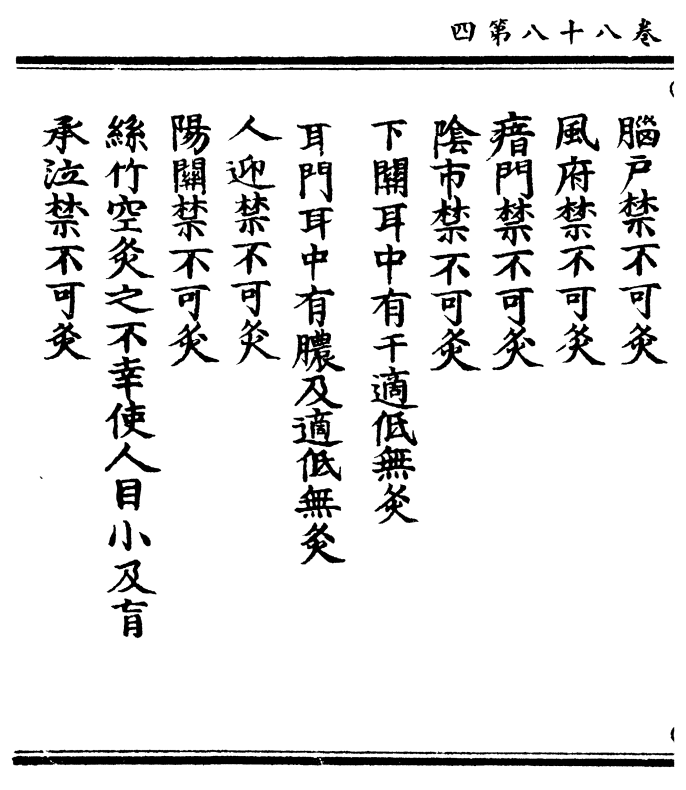 卷八十八第四
腦戶禁不可灸
風府禁不可灸
瘖門禁不可灸
陰市禁不可灸
下關耳中有干適低無灸
耳門耳中有膿及適低無灸
人迎禁不可灸
陽關禁不可灸
絲竹空灸之不幸使人目小及肓
承泣禁不可灸